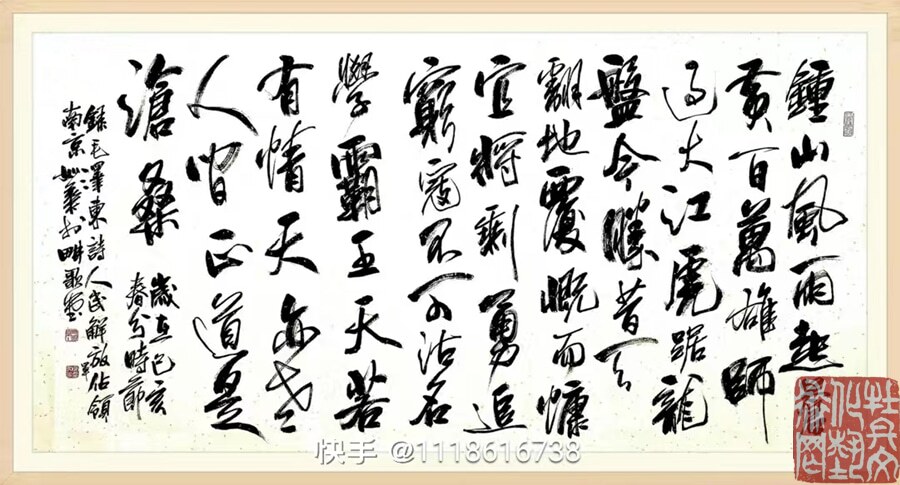 鍾山風雨起蒼
黃百萬雄師
过大江虎踞龍
盤今勝昔天
翻地覆慨而慷
宜將剩勇追
窮寇不可沽名
學霸王天若
有情天亦老
人間正道是
滄桑
歲在己亥
春分時節
錄毛澤東詩人民解放軍佔領
南京
快手 @1118616738